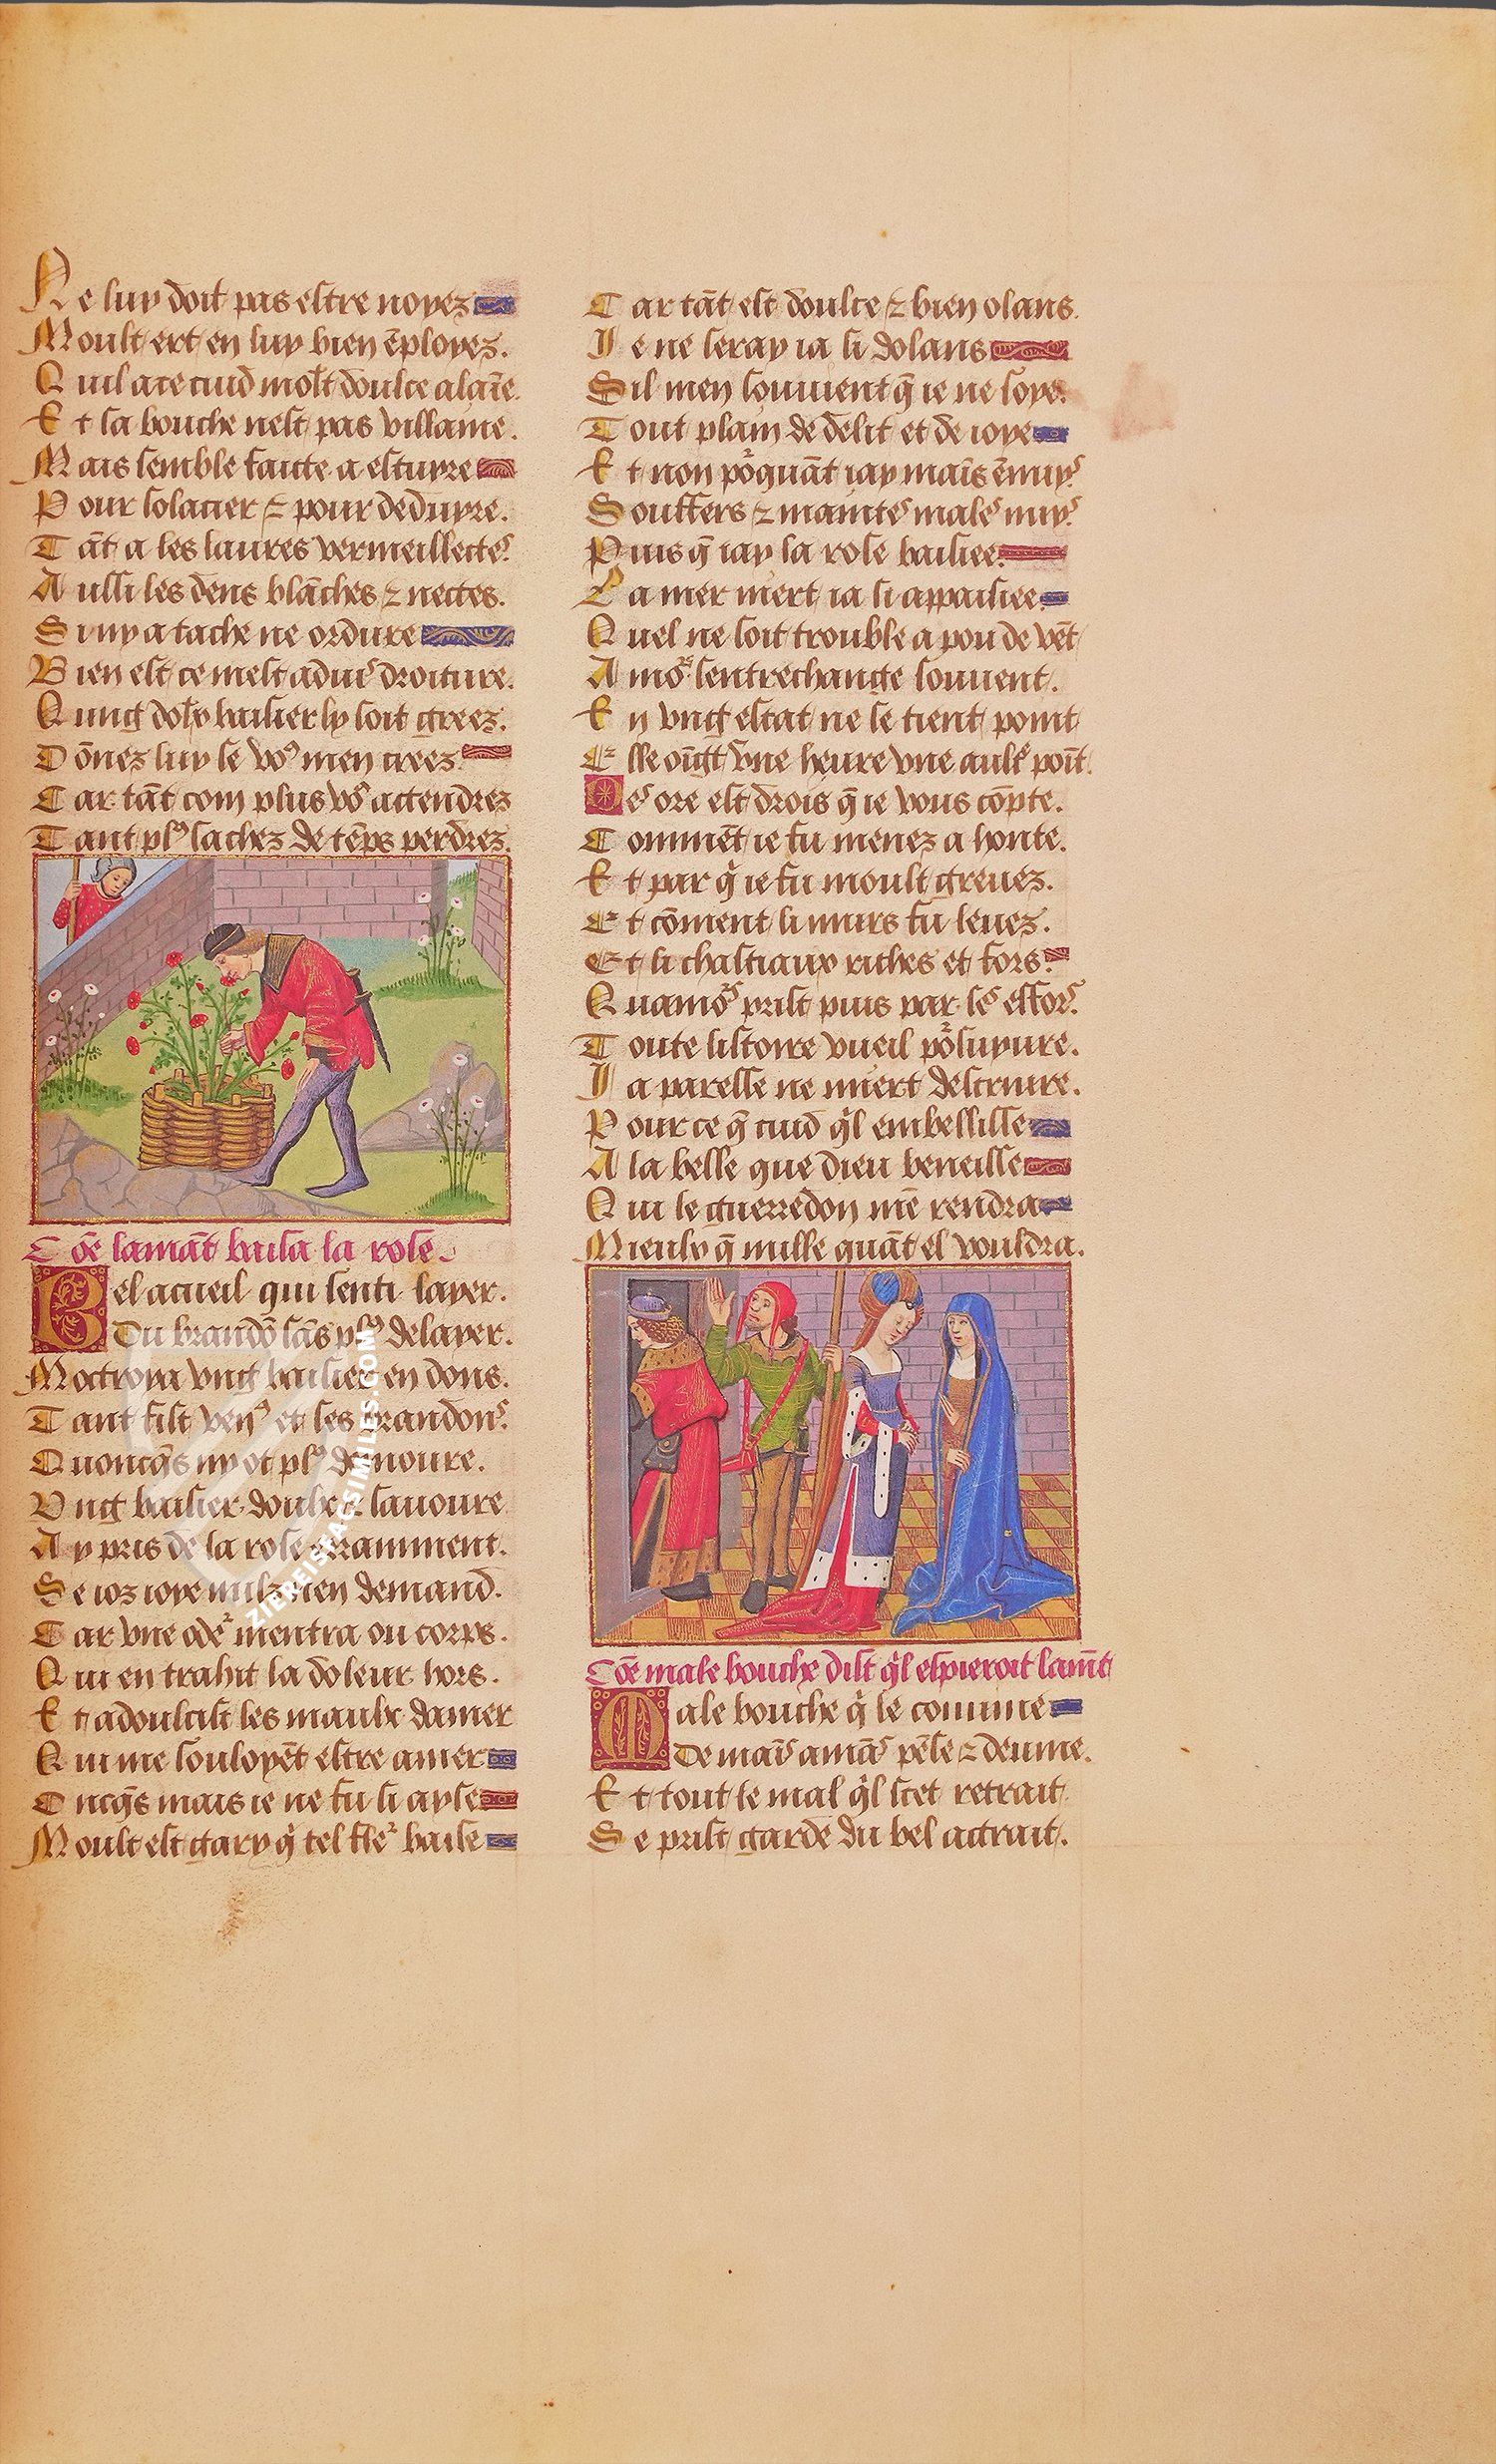 Ne luy doit pas estre noyez
Moult ert en luy bien ēployez.
Quil a ce cuid molt doulce alaīe.
Et sa bouche nest pas villaine.
Mais semble faicte a estuyre
Pour solacier ⁊ pour deduyre.
Tāt a les laures vermeillectes
Aussi les dens blāches ⁊ nectes.
Si ny a tache ne ordure
Bien est ce mest aduis droiture.
Qung
baisier ly soit greez.
Dōnez luy se vo⁹ men creez.
Car tāt com plus vo⁹ actendrez
Tant pl⁹ sachez de tēps perdrez.
Cōe lamāt baisa la rose.
Bel acueil qui senti layer.
Du brandō sās pl⁹ delayer.
Moctroya vng baisier en dons.
Tant fist ven⁹ et ses brandons.
Quoncq̄s ny ot pl⁹ demoure.
Vng baisier doulx ⁊ savoure
Ay pris de la rose erramment.
Se ioz ioye nulz nen demand.
Car vne
mentra ou corps.
Qui en trahit la doleur hors.
Et adoulcist les maulx damer
Qui me souloyēt estre amer
Oncq̄s mais ie ne fu si ayse
Moult est gary q̄ tel
baise
Car tāt est doulce ⁊ bien olans.
Ie ne seray ia si dolans
Sil men souuient q̄ ie ne soye.
Tout plain de delit et de ioye
Et non po²quāt iay mais ēnuys
Souffers ⁊ maintes males nuys
Puis q̄ iay la rose baisiee.
La mer niert ia si appaisiee
Quel ne soit trouble a pou de vēt
Amo²s sentrechange souuent.
En vng estat ne se tient point
Elle oingt vne heure vne aultre poīt.
Des ore est drois q̄ ie vous cōpte.
Commēt ie fu menez a honte.
Et par q̄ ie fu moult greuez.
Et cōment li murs fu leuez.
Et li chastiaux riches et fors.
Quamo²s prist puis par ses effors
Toute listoire vueil po²suyure.
Ia paresse ne miert descruire.
Pour ce q̄ cuid q̄l embellisse
A la belle que dieu beneisse
Qui le guerredon mē rendra
Mieulx q̄ nulle quāt el vouldra.
Cōe male bouche dist q̄l espieroit lamāt
Male bouche q̄ le couuine
De mais amās pēse ⁊ deuine.
Et tout le mal q̄l scet retrait
Se prist garde du bel actrait.
ZIEREISFACSIMILES.COM